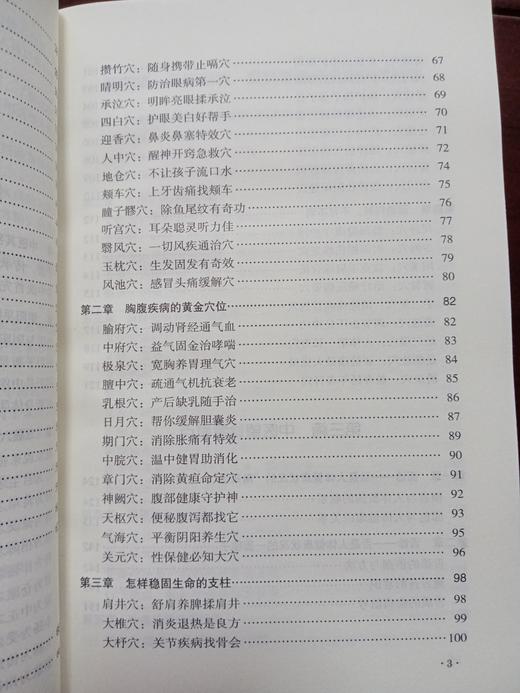 攒竹穴：随身携带止嗝穴 67
睛明穴：防治眼病第一穴 68
承泣穴：明眸亮眼揉承泣 69
四白穴：护眼美白好帮手 70
迎香穴：鼻炎鼻塞特效穴 71
人中穴：醒神开窍急救穴 72
地仓穴：不让孩子流口水 74
颊车穴：上牙齿痛找颊车 75
瞳子髎穴：除鱼尾纹有奇功 76
听宫穴：耳朵聪灵听力佳 77
翳风穴：一切风疾通治穴 78
玉枕穴：生发固发有奇效 79
风池穴：感冒头痛缓解穴 80
第二章 胸腹疾病的黄金穴位 82
腧府穴：调动肾经通气血 82
中府穴：益气固金治哮喘 83
极泉穴：宽胸养胃理气穴 84
膻中穴：疏通气机抗衰老 85
乳根穴：产后缺乳随手治 86
日月穴：帮你缓解胆囊炎 87
期门穴：消除胀痛有特效 89
中脘穴：温中健胃助消化 90
章门穴：消除黄疸命定穴 91
神阙穴：腹部健康守护神 92
天枢穴：便秘腹泻都找它 93
气海穴：平衡阴阳养生穴 95
关元穴：性保健必知大穴 96
第三章 怎样稳固生命的支柱 98
肩井穴：舒肩养脾揉肩井 98
大椎穴：消炎退热是良方 99
大杼穴：关节疾病找骨会 100
· 3 ·